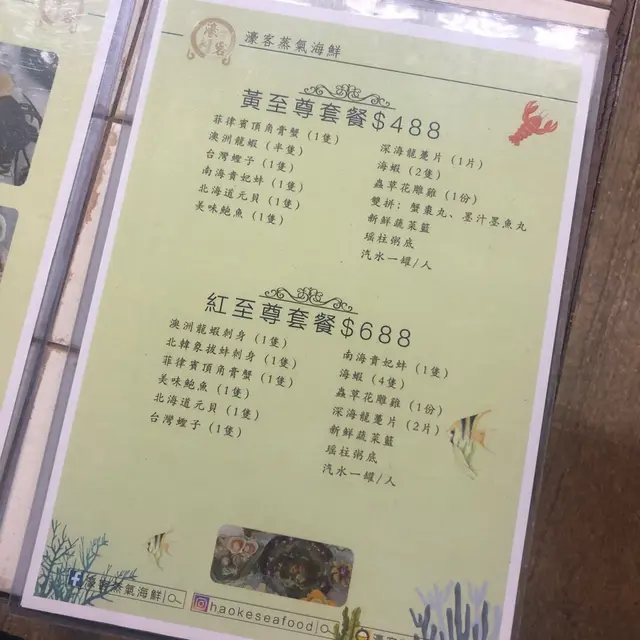 濠客蒸氣海鮮
黃至尊套餐$488
菲律賓頂角膏蟹 (1隻)
澳洲龍蝦 (半隻)
台灣蟶子 (1隻)
南海貴妃蚌 (1隻)
北海道元貝 (1隻)
美味鮑魚 (1隻)
深海龍躉片 (1片)
海蝦 (2隻)
蟲草花雕雞 (1份)
雙拼: 蟹棗丸、墨汁墨魚丸
新鮮蔬菜籃
瑶柱粥底
汽水一罐/人
紅至尊套餐$688
澳洲龍蝦刺身 (1隻)
北韓象拔蚌刺身 (1隻)
菲律賓頂角膏蟹 (1隻)
美味鮑魚 (1隻)
北海道元貝 (1隻)
台灣蟶子 (1隻)
南海貴妃蚌 (1隻)
海蝦 (4隻)
蟲草花雕雞 (1份)
深海龍躉片 (2片)
新鮮蔬菜籃
瑶柱粥底
汽水一罐/人
濠客蒸氣海鮮
haokeseafood